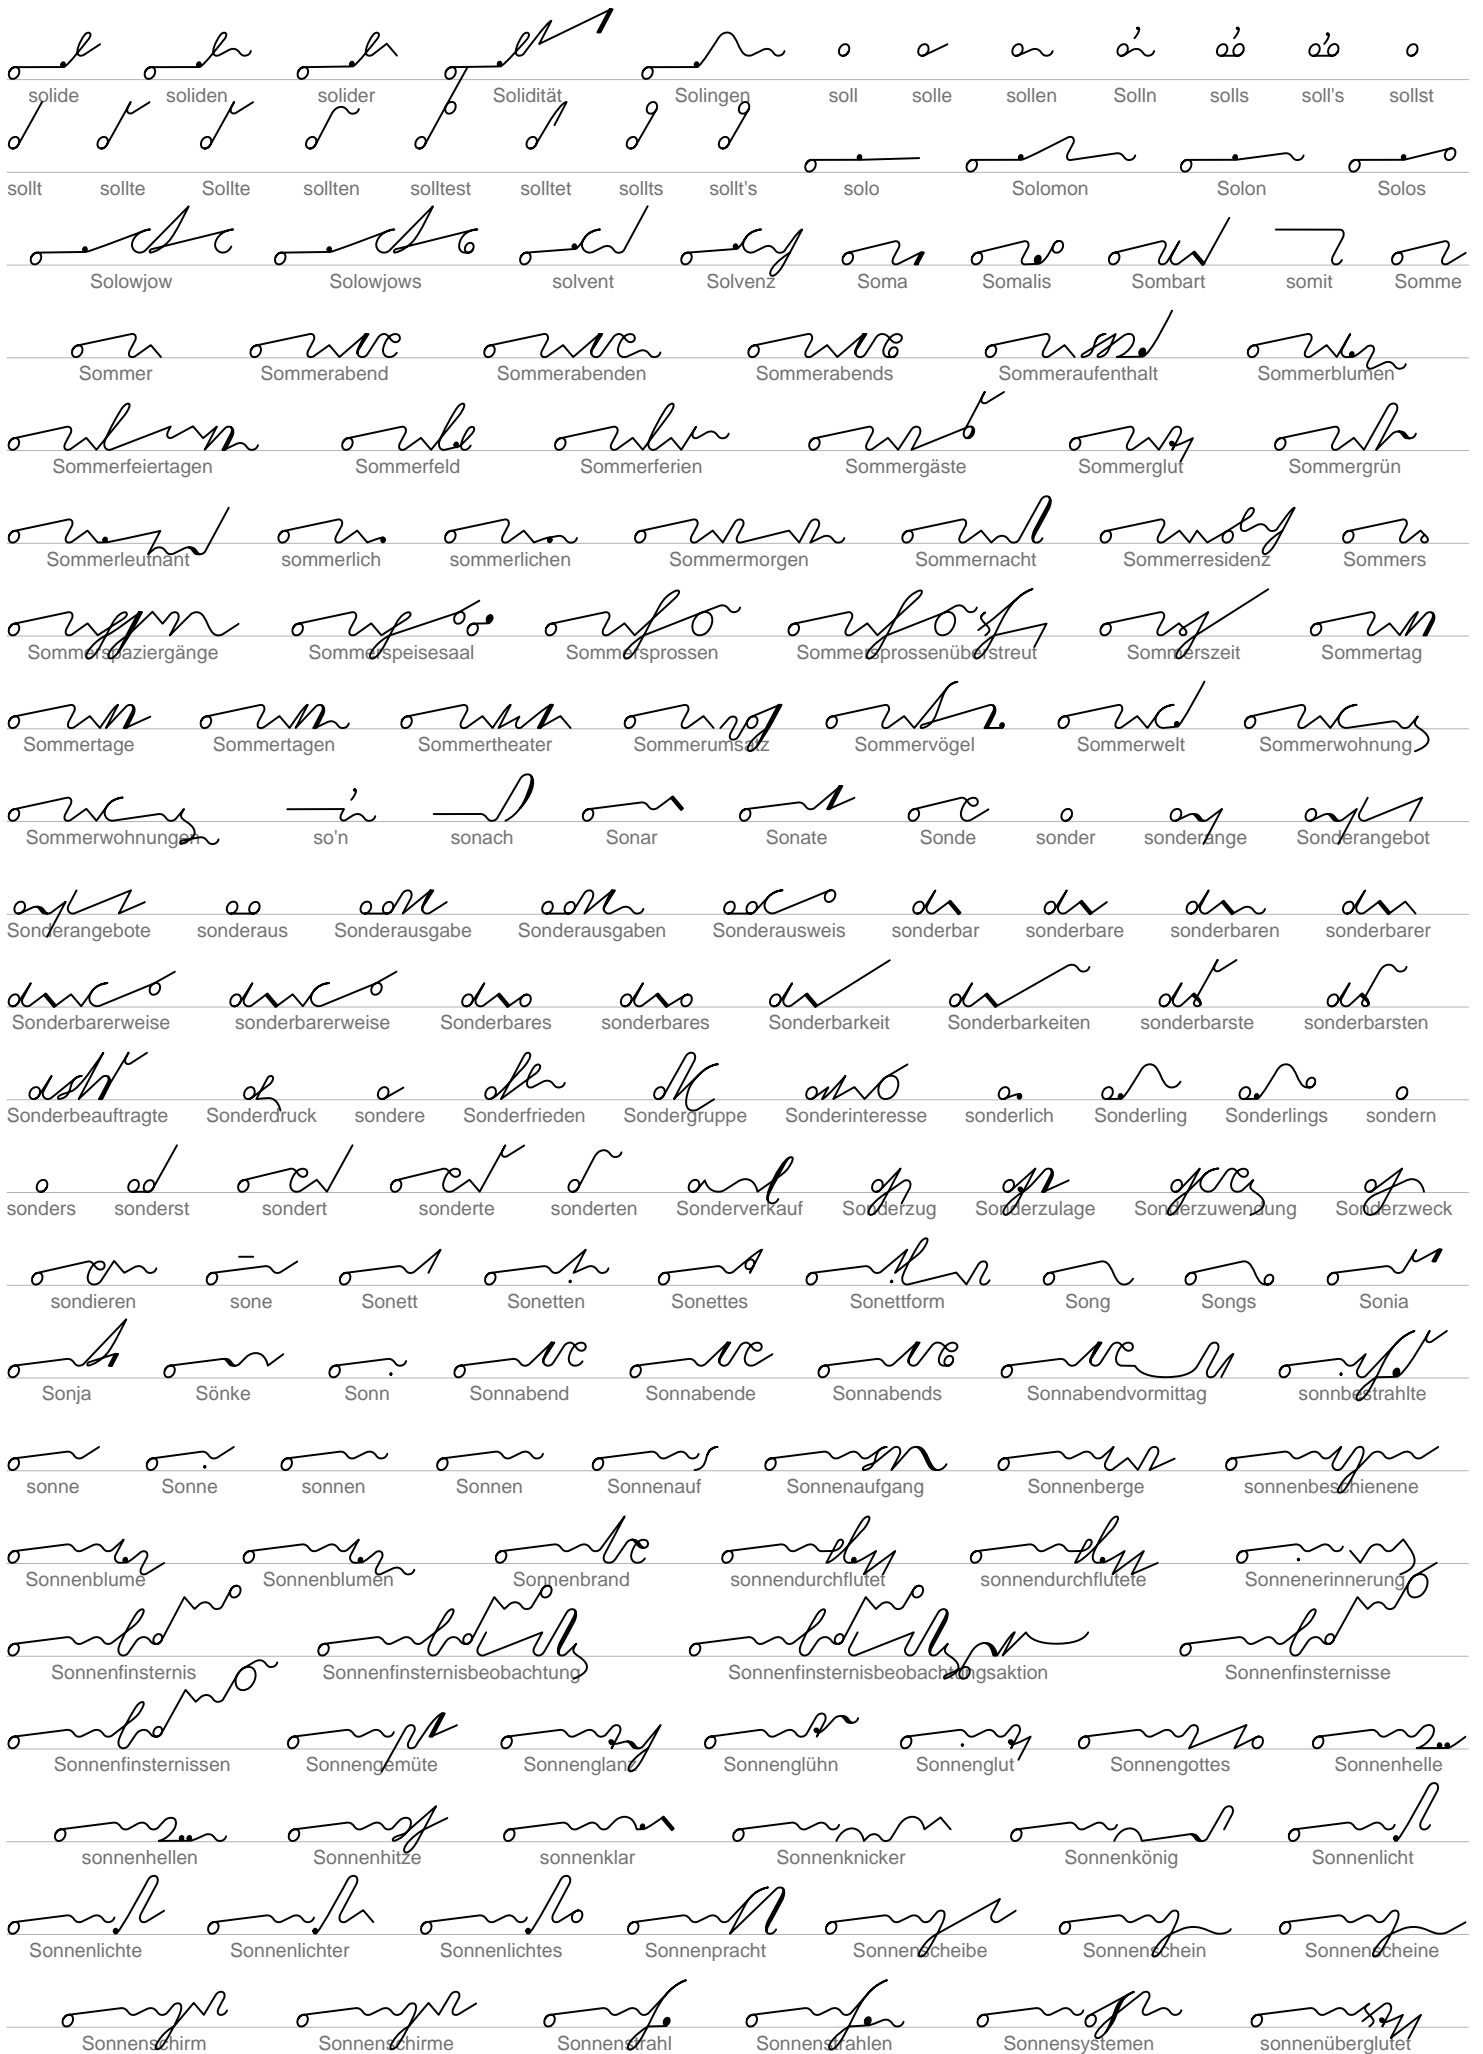 solide soliden solider Solidität Solingen soll solle sollen Solln solls soll's sollst
sollt sollte Sollte sollten solltest solltet sollts sollt's solo Solomon Solon Solos
Solowjow Solowjows solvent Solvenz Soma Somalis Sombart somit Somme
Sommer Sommerabend Sommerabenden Sommerabends Sommeraufenthalt Sommerblumen
Sommerfeiertagen Sommerfeld Sommerferien Sommergäste Sommerglut Sommergrün
Sommerleutnant sommerlich sommerlichen Sommermorgen Sommernacht Sommerresidenz Sommers
Sommerspaziergänge Sommerspeisesaal Sommersprossen Sommersprossenüberstreut Sommerszeit Sommertag
Sommertage Sommertagen Sommertheater Sommerumsatz Sommervögel Sommerwelt Sommerwohnung
Sommerwohnungen so'n sonach Sonar Sonate Sonde sonder sonderange Sonderangebot
Sonderangebote sonderaus Sonderausgabe Sonderausgaben Sonderausweis sonderbar sonderbare sonderbaren sonderbarer
Sonderbarerweise sonderbarerweise Sonderbares sonderbares Sonderbarkeit Sonderbarkeiten sonderbarste sonderbarsten
Sonderbeauftragte Sonderdruck sondere Sonderfrieden Sondergruppe Sonderinteresse sonderlich Sonderling Sonderlings sondern
sonders sonderst sondert sonderte sonderten Sonderverkauf Sonderzug Sonderzulage Sonderzuwendung Sonderzweck
sondieren sone Sonett Sonetten Sonettes Sonettform Song Songs Sonia
Sonja Sönke Sonn Sonnabend Sonnabende Sonnabends Sonnabendvormittag sonnbestrahlte
sonne Sonne sonnen Sonnen Sonnenauf Sonnenaufgang Sonnenberge sonnenbeschienene
Sonnenblume Sonnenblumen Sonnenbrand sonnendurchflutet sonnendurchflutete Sonnenerinnerung
Sonnenfinsternis Sonnenfinsternisbeobachtung Sonnenfinsternisbeobachtungsaktion Sonnenfinsternisse
Sonnenfinsternissen Sonnengemüte Sonnenglanz Sonnenglühn Sonnenglut Sonnengottes Sonnenhelle
sonnenhellen Sonnenhitze sonnenklar Sonnenknicker Sonnenkönig Sonnenlicht
Sonnenlichte Sonnenlichter Sonnenlichtes Sonnenpracht Sonnenscheibe Sonnenschein Sonnenscheine
Sonnenschirm Sonnenschirme Sonnenstrahl Sonnenstrahlen Sonnensystemen sonnenüberglutet